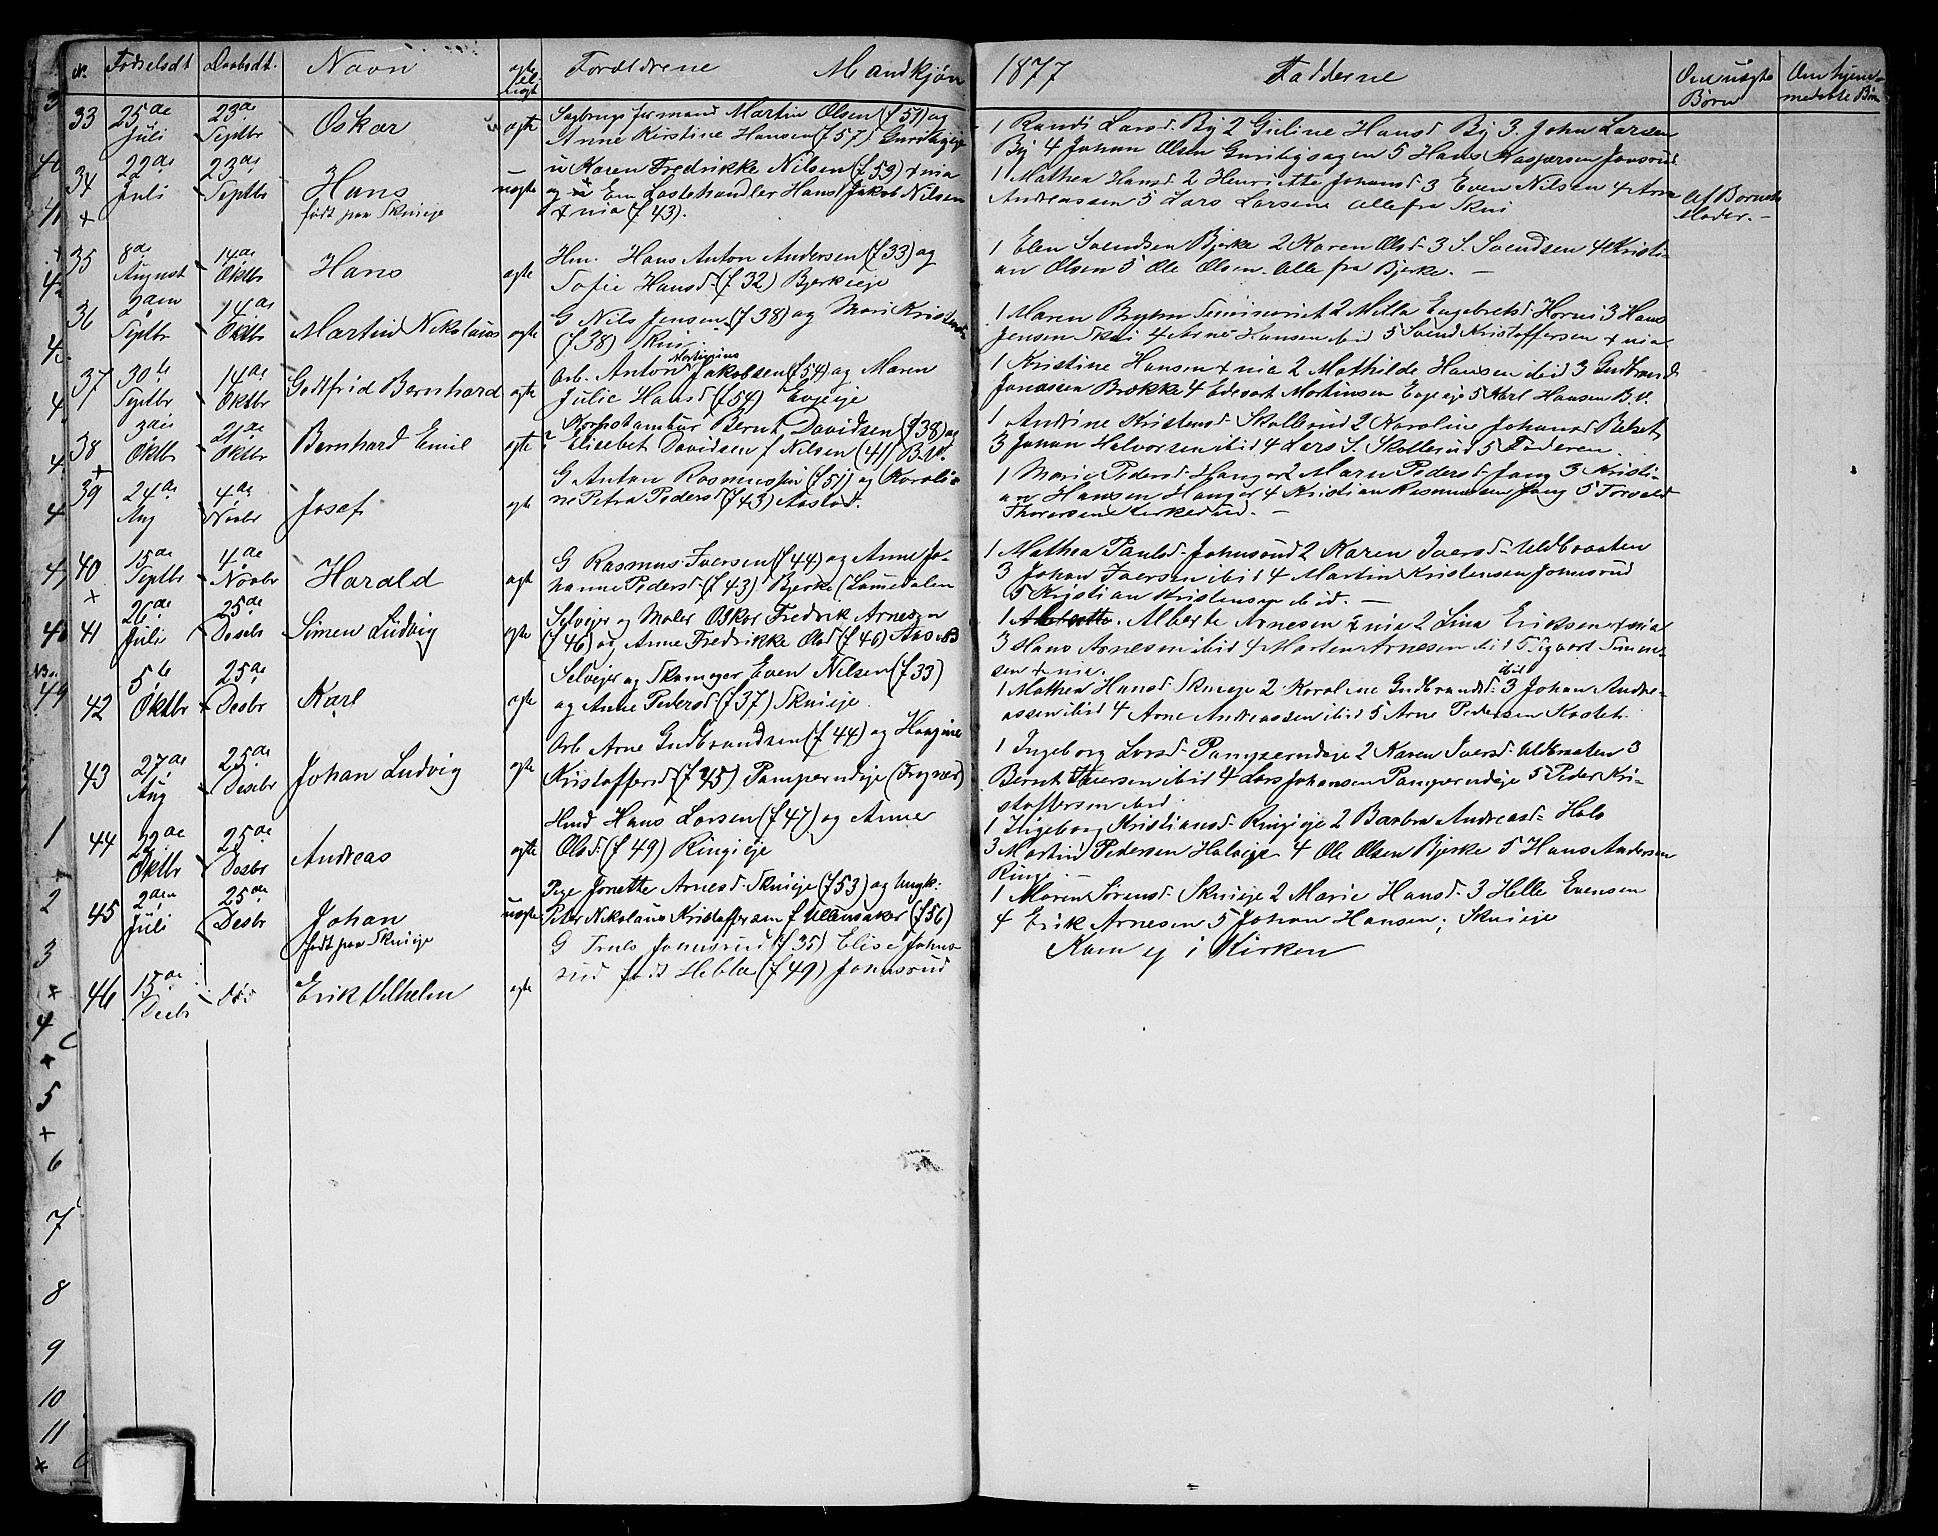 N. Fødselsdt Daabsdt. Navn ægte el. uægt Forældrene Mandkjøn 1877 Fadderne Om uægte Børn Om hjemmedøbte Børn
33 25de Juli 23de Septbr Oskar ægte Sagbrugsformand Martin Olsen (f 51) og
Anne Kirstine Hansen (f 57)
1 Randi Larsd. By 2 Gieline Hansd By 3. John Larsen
By 4 Johan Olsen 5 Hans Kaspersen Jonsrud
34 22de Juli 23de Septbr Hans født paa Skuieje uægte u Karen Fredrikke Nilsen (f 53)
og Em Lastehandler Hans Jakob Nilsen
(f 43).
1 Mathea Hansd 2 Henriette Johansd 3 Even Nilsen 4 Arne
Andreassen 5 Lars Larsen alle fra Skui
Af Barnets Moder.
35 8de August 14de Oktbr Hans ægte Hm. Hans Anton Andersen (f 33) og
Sofie Hansd (f 32) Bjerkeeje
1 Elen Svendsen Bjerke 2 Karen Olsd 3 S. Svendsen 4 Kristi-
an Olsen 5 Ole Olsen. alle fra Bjerke.
36 2den Septbr 14de Oktbr Martin Nikolaus ægte G Nils Jensen (f 38) og Mari Kristensd
(f 38) Skui.
1 Maren Seminariet 2 Milla Engebretsd Horni 3 Hans
Jensen Skui 4 Arne Hansen ibid 5 Svend Kristoffersen
37 30te Septbr 14de Oktbr Godtfrid Bernhard ægte Arb. Anton Jakobsen (f 54) og Maren
Julie Hansd (f 54) Evjeeje
1 Kristine Hansen 2 Mathilde Hansen ibid 3 Gudbrand
Jonassen Brække 4 Edevart Mortinsen Evjeeje 5 Karl Hansen B.V.
38 3die Oktbr 21de Oktbr Bernhard Emil ægte Korpstambur Bernt Davidsen (f 38) og
Elisebet Davidsen f Nilsen (41) B.V.
1 Andrine Kristensd Skollerud 2 Karoline Johansd
3 Johan Halvorsen ibid 4 Lars S. Skollerud 5 Faderen.
39 24de Aug 4de Novbr Josef ægte G Anton Rasmussen (f 51) og Karoli-
ne Petra Pedersd (f 43)
1 Marie Pedersd Hanger 2 Maren Pedersd Jong 3 Kristi-
an Hansen Hanger 4 Kristian Rasmussen Jong 5 Torvald
Thorersen Kirkerud.
40 15de Septbr 4de Novbr Harald ægte G Rasmus Iversen (f 44) og Anne Jo-
hanne Pedersd (f 43) Bjerke (Lomedalen
1 Mathea Paulsd Johnsrud 2 Karen Iversd
3 Johan Iversen ibid 4 Martin Kristensen Johnsrud
5 Kristian Kristensen ibid.
41 26de Juli 25de Desbr Simen Ludvig ægte Selvejer og Maler Oskar Fredrik Arnesen
(f 46) og Anne Fredrikke Olsd (f 46)
1 Alberte Arnesen 2 Lina Eriksen
3 Hans Arnesen ibid 4 Morten Arnesen ibid 5 Sigvart Simen-
sen
42 5te Oktbr 25de Desbr Karl ægte Selvejer og Skomager Even Nilsen (f 33)
og Anne Pedersd (f 37) Skuieje.
1 Mathea Hansd Skuieje 2 Karoline Gudbrandsd ibid 3 Johan Andre-
assen ibid 4 Arne Andreassen ibid 5 Arne Pedersen
43 27de Aug 25de Desbr Johan Ludvig ægte Arb Arne Gudbrandsen (f 44) og
Kristoffersd (f 45) Pamperudeje
1 Ingeborg Larsd Pamperudeje 2 Karen Iversd 3
Bernt Iversen ibid 4 Lars Johansen Pamperudeje 5 Peder Kri-
stoffersen ibid
44 22de Oktbr 25de Desbr Andreas ægte Hmd Hans Larsen (f 47) og Anne
Olsd (f 49) Ringieje
1 Ingeborg Kristiansd Ringieje 2 Barbra Andreasd
3 Martin Pedersen 4 Ole Olsen Bjerke 5 Hans Andersen
Ringi
45 2den Juli 25de Desbr Johan født paa Skuieje uægte Pige Jonette Arnesd Skuieje (f 53) og Ungk:
Peter Nikolaus Kristoffersen f Ullensaker (f 56)
1 Maren Sørensd Skuieje 2 Marie Hansd 3 Helle Evensen
4 Erik Arnesen 5 Johan Hansen, Skuieje
46 15de Decbr død Erik Vilhelm ægte G Jonsrud (f 35) Elise Johns-
rud født (f 49) Jonnsrud
Kom ej i Kirken